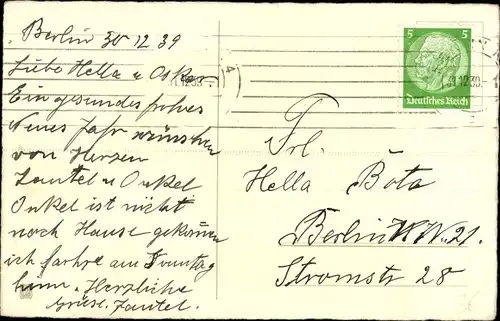 Berlin 30 12 39
Liebe Hella u Oskar.
Ein gesundes frohes
Neues Jahr wünschen
von Herzen
Tantel u Onkel
Onkel ist nicht
nach Hause gekommen
ich fahre am Sonntag
Herzliche
Grüse. Tantel.
5 5
Deutsches Reich
31.12.39.
4
31.12.39.
Frl.
Hella Böta
Berlin NW. 21.
Stromstr 28